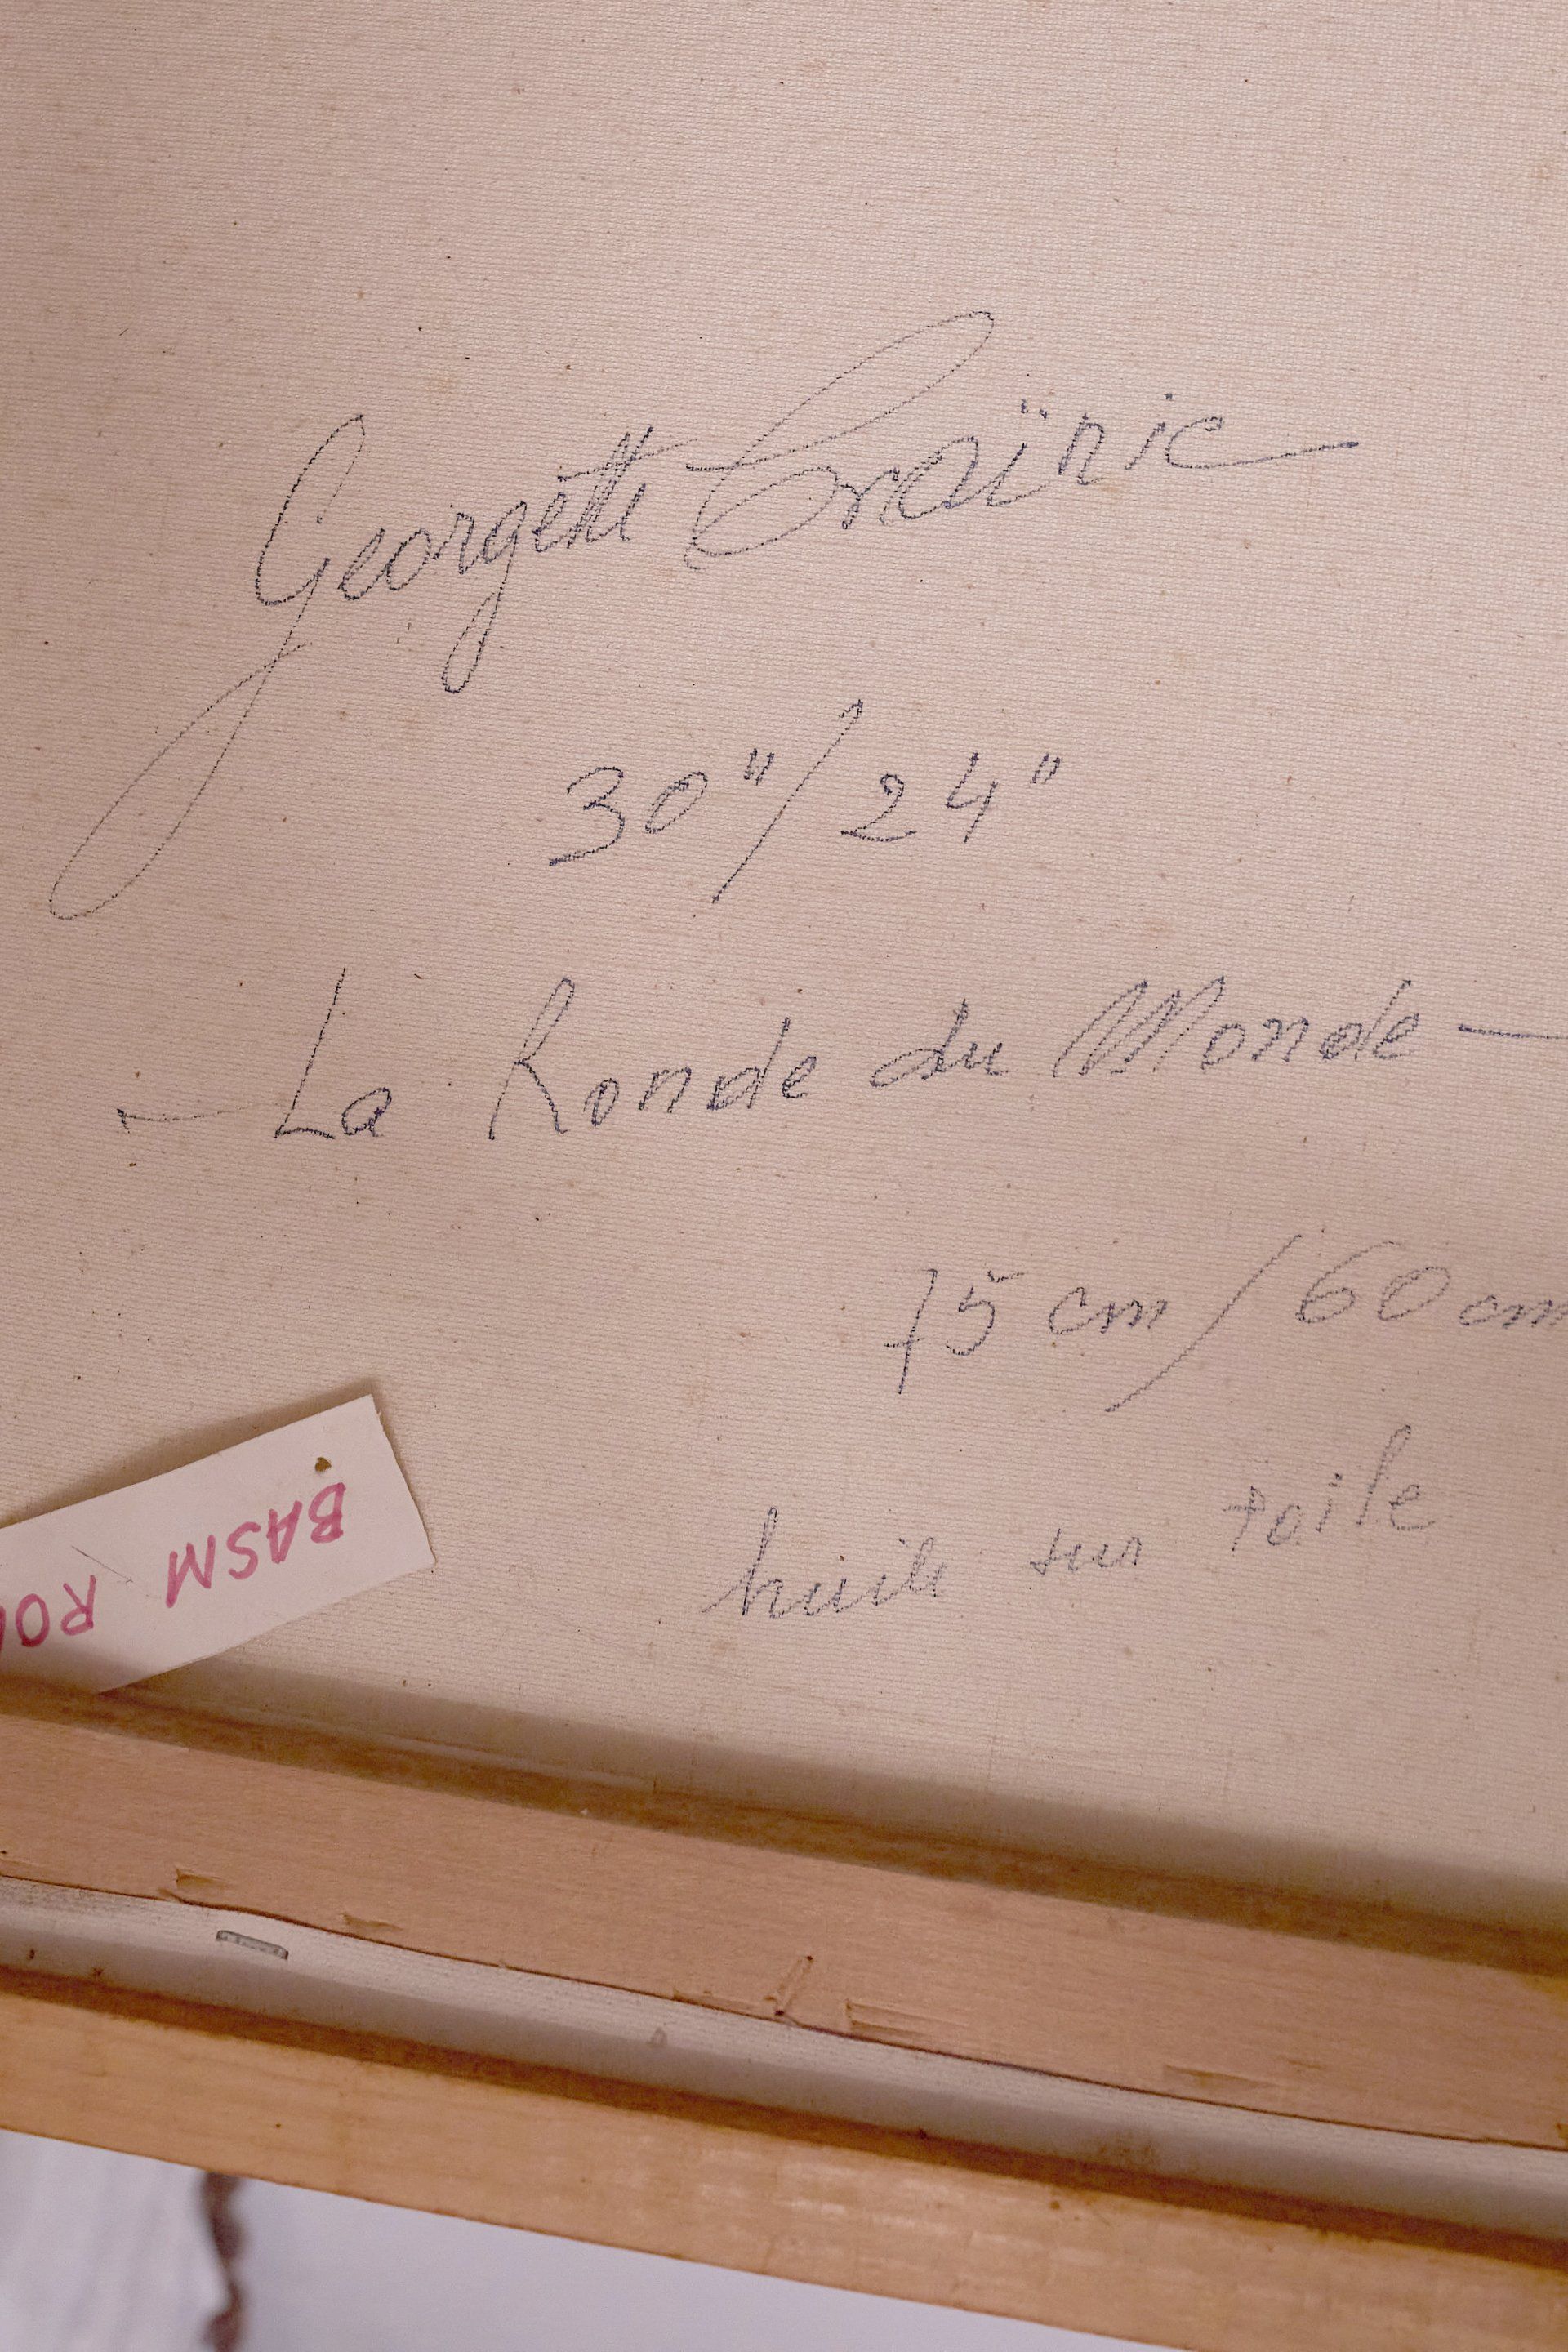 Georgette
30"/24"
— La Ronde du Monde —
75 cm/60 cm
huile sur toile
BASM